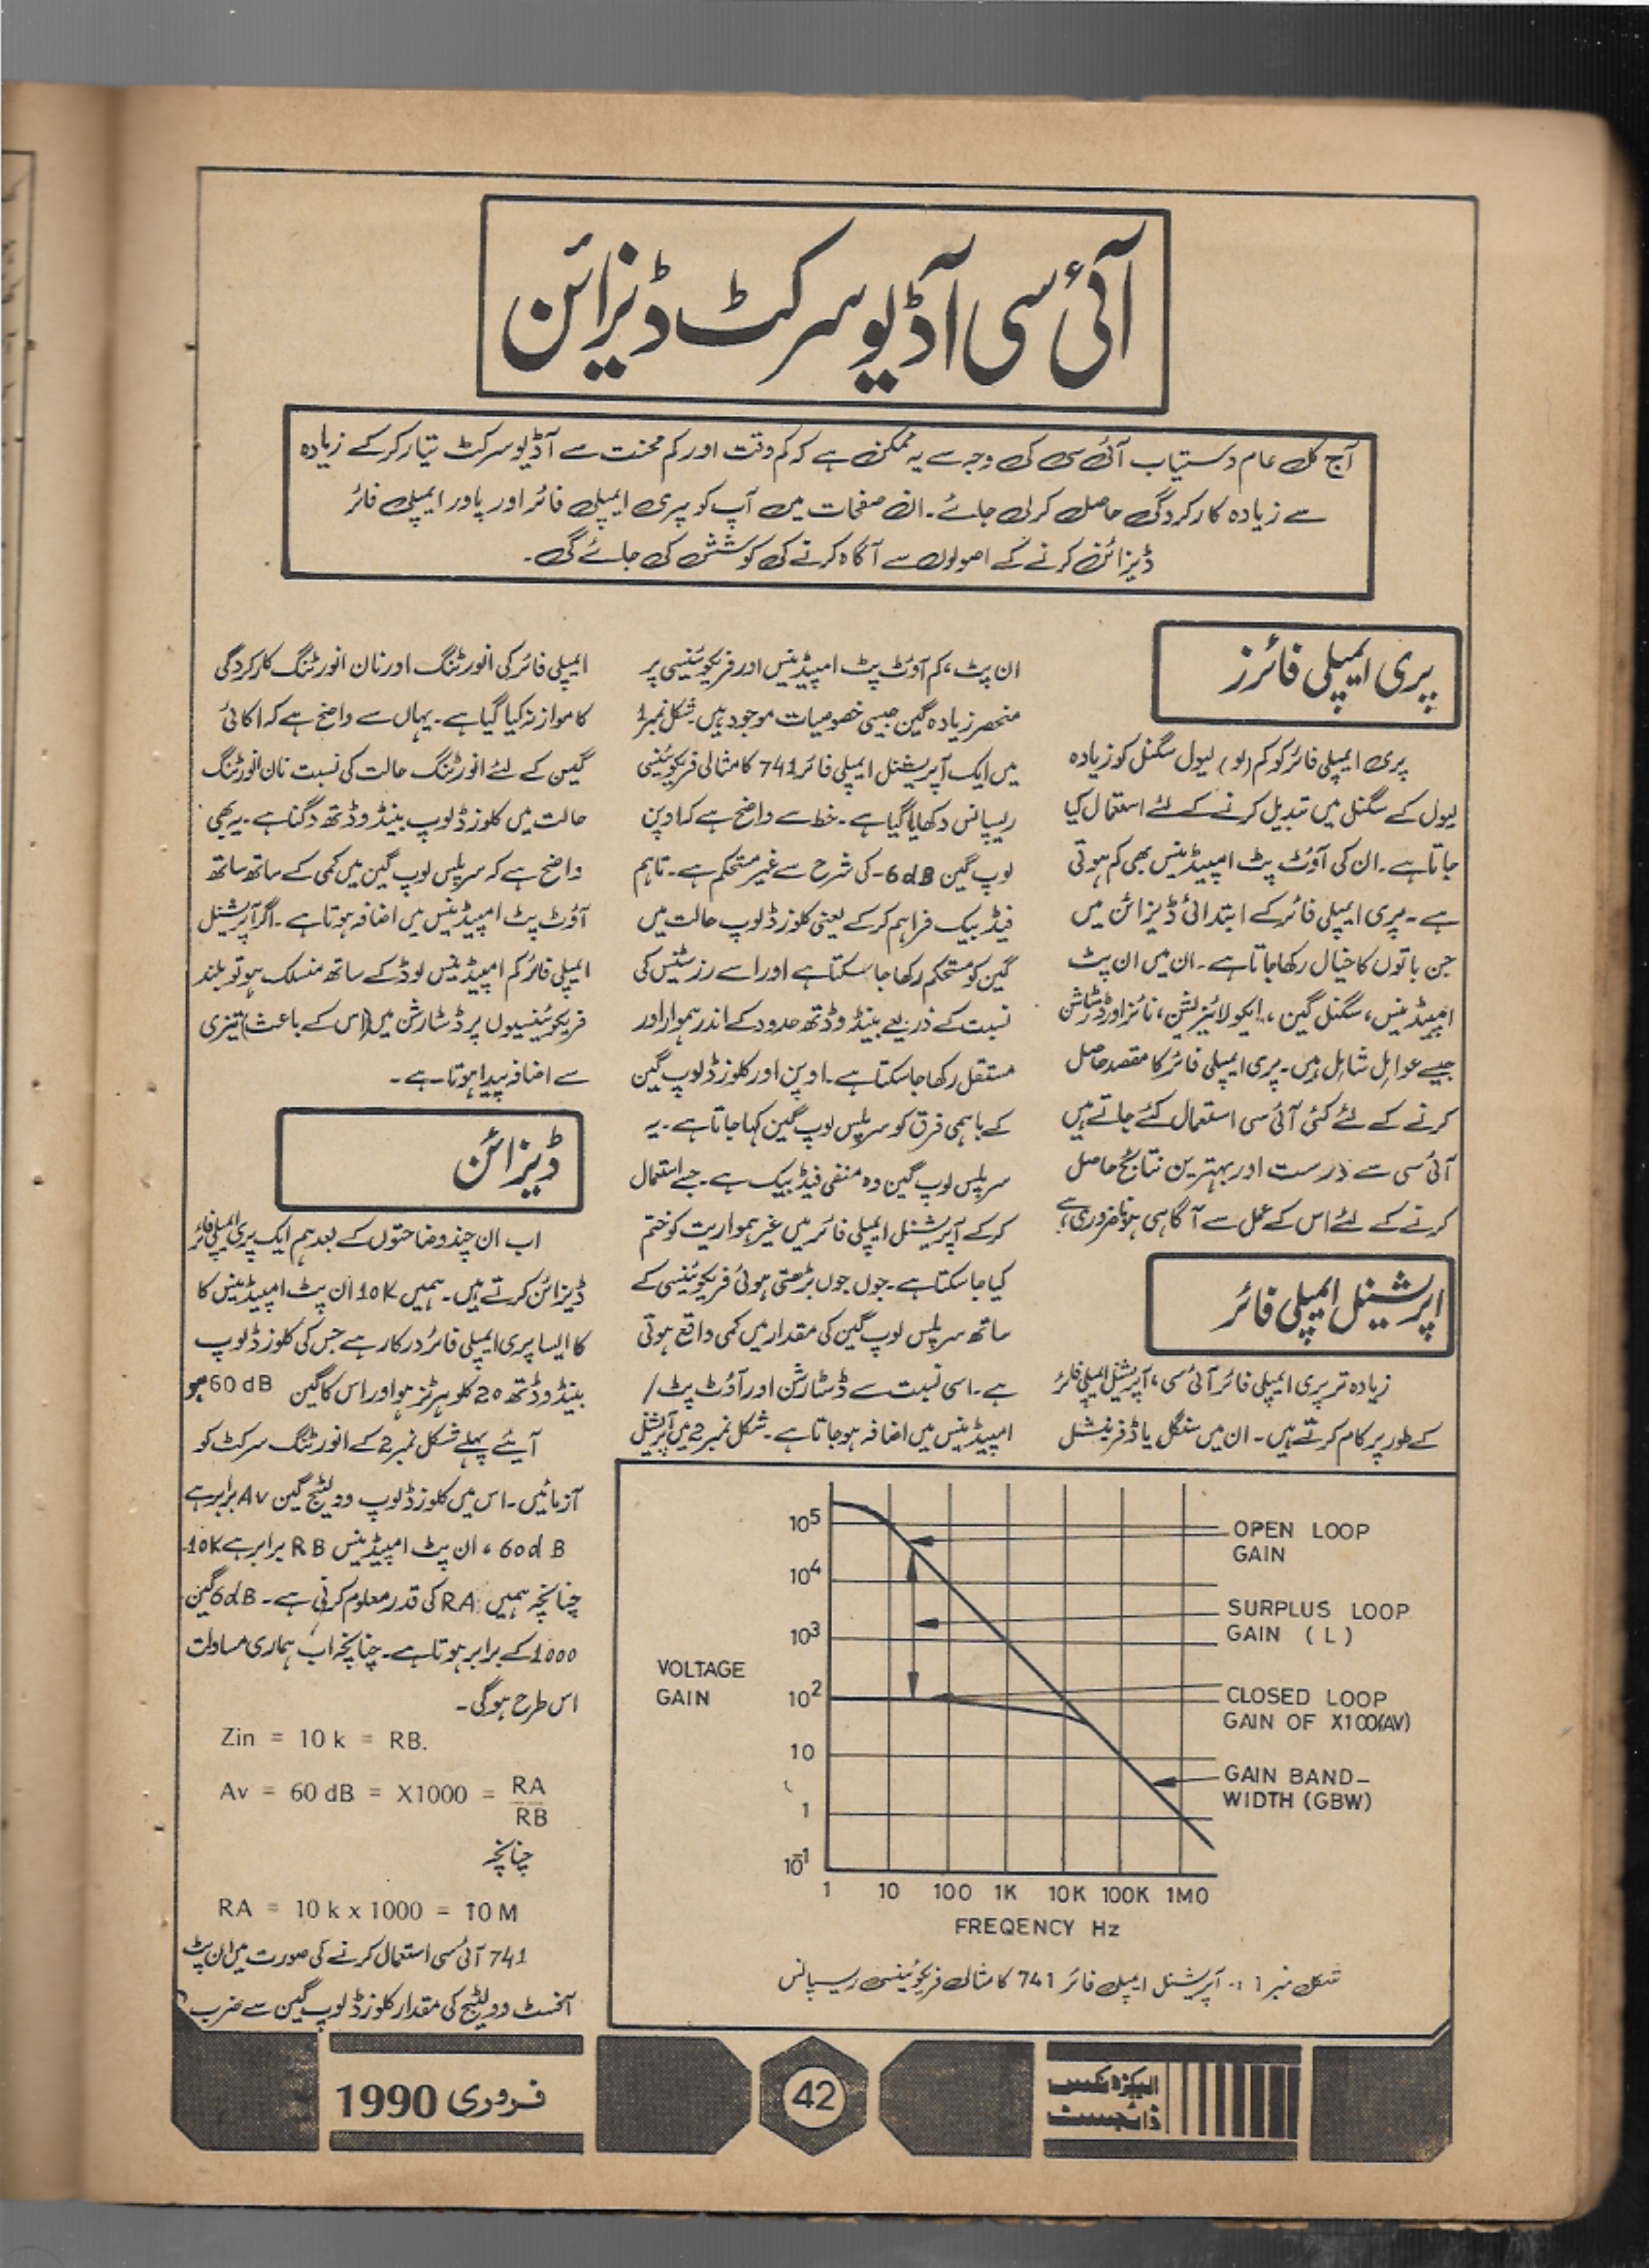 آئی سی آڈیو سرکٹ ڈیزائن
آج کل عام دستیاب آئی سی کی وجہ سے یہ ممکن ہے کہ کم وقت اور کم محنت سے آڈیو سرکٹ تیار کر کے زیادہ
سے زیادہ کارکردگی حاصل کر لی جائے۔ ان صفحات میں آپ کو پری ایمپلی فائر اور پاور ایمپلی فائر
ڈیزائن کرنے کے اصولوں سے آگاہ کرنے کی کوشش کی جائے گی۔
پری ایمپلی فائرز
پری ایمپلی فائر کو کم (لو) لیول سگنل کو زیادہ
لیول کے سگنل میں تبدیل کرنے کے لئے استعمال کیا
جاتا ہے۔ ان کی آؤٹ پٹ امپیڈینس بھی کم ہوتی
ہے۔ پری ایمپلی فائر کے ابتدائی ڈیزائن میں
جن باتوں کا خیال رکھا جاتا ہے۔ ان میں ان پٹ
امپیڈینس، سگنل گین، ایکولائیزیشن، نائز اور ڈسٹارشن
جیسے عوامل شامل ہیں۔ پری ایمپلی فائر کا مقصد حاصل
کرنے کے لئے کئی آئی سی استعمال کئے جاتے ہیں
آئی سی سے درست اور بہترین نتائج حاصل
کرنے کے لئے اس کے عمل سے آگاہی ہونا ضروری ہے
اپریشنل ایمپلی فائر
زیادہ تر پری ایمپلی فائر آئی سی، آپریشنل ایمپلی فائر
کے طور پر کام کرتے ہیں۔ ان میں سنگل یا ڈفرینشل
ان پٹ، کم آوٹ پٹ امپیڈینس اور فریکوئینسی پر
منحصر زیادہ گین جیسی خصوصیات موجود ہیں۔ شکل نمبر 1
میں ایک آپریشنل ایمپلی فائر 741 کا مثالی فریکوئینسی
ریسپانس دکھایا گیا ہے۔ خط سے واضح ہے کہ اوپن
لوپ گین 6dB- کی شرح سے غیر مستحکم ہے۔ تاہم
فیڈ بیک فراہم کر کے یعنی کلوزڈ لوپ حالت میں
گین کو مستحکم رکھا جا سکتا ہے اور اسے رزسٹینس کی
نسبت کے ذریعے بینڈ وڈتھ حدود کے اندر ہموار اور
مستقل رکھا جا سکتا ہے۔ اوپن اور کلوزڈ لوپ گین
کے باہمی فرق کو سرپلس لوپ گین کہا جاتا ہے۔ یہ
سرپلس لوپ گین وہ منفی فیڈ بیک ہے۔ جسے استعمال
کر کے آپریشنل ایمپلی فائر میں غیر ہمواریت کو ختم
کیا جا سکتا ہے۔ جوں جوں بڑھتی ہوئی فریکوئینسی کے
ساتھ سرپلس لوپ گین کی مقدار میں کمی واقع ہوتی
ہے۔ اسی نسبت سے ڈسٹارشن اور آؤٹ پٹ/
امپیڈینس میں اضافہ ہو جاتا ہے۔ شکل نمبر 2 میں آپریشنل
ایمپلی فائر کی انورٹنگ اور نان انورٹنگ کارکردگی
کا موازنہ کیا گیا ہے۔ یہاں سے واضح ہے کہ اکائی
گین کے لئے انورٹنگ حالت کی نسبت نان انورٹنگ
حالت میں کلوزڈ لوپ بینڈ وڈتھ دگنا ہے۔ یہ بھی
واضح ہے کہ سرپلس لوپ گین میں کمی کے ساتھ ساتھ
آؤٹ پٹ امپیڈینس میں اضافہ ہوتا ہے۔ اگر آپریشنل
ایمپلی فائر کم امپیڈینس لوڈ کے ساتھ منسلک ہو تو بلند
فریکوئینسیوں پر ڈسٹارشن میں (اس کے باعث) تیزی
سے اضافہ پیدا ہوتا ہے۔
ڈیزائن
اب ان چند وضاحتوں کے بعد ہم ایک پری ایمپلی فائر
ڈیزائن کرتے ہیں۔ ہمیں 10K ان پٹ امپیڈینس کا
کا ایسا پری ایمپلی فائر درکار ہے جس کی کلوزڈ لوپ
بینڈ وڈتھ 20 کلو ہرٹز ہو اور اس کا گین 60dB ہو
آیئے پہلے شکل نمبر 2 کے انورٹنگ سرکٹ کو
آزمائیں۔ اس میں کلوزڈ لوپ وولٹیج گین Av برابر ہے
60dB، ان پٹ امپیڈینس RB برابر ہے 10K
چنانچہ ہمیں RA کی قدر معلوم کرنی ہے۔ 6dB گین
1000 کے برابر ہوتا ہے۔ چنانچہ اب ہماری مساوات
اس طرح ہوگی۔
Zin = 10 k = RB.
Av = 60 dB = X1000 = RA
RB
چنانچہ
RA = 10 k x 1000 = 10 M
741 آئی سی استعمال کرنے کی صورت میں ان پٹ
آفسٹ وولٹیج کی مقدار کلوزڈ لوپ گین سے ضرب
VOLTAGE
GAIN
10⁵
10⁴
10³
10²
10
1
10⁻¹
1 10 100 1K 10K 100K 1M0
FREQENCY Hz
OPEN LOOP
GAIN
SURPLUS LOOP
GAIN (L)
CLOSED LOOP
GAIN OF X100(AV)
GAIN BAND-
WIDTH (GBW)
شکل نمبر 1 :- آپریشنل ایمپلی فائر 741 کا مثالی فریکوئینسی ریسپانس
الیکٹرونکس
ڈائجسٹ
42
فروری 1990